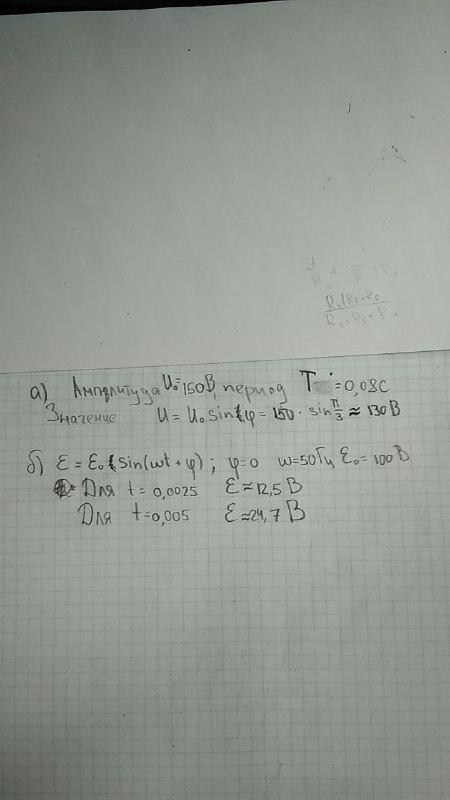 а) Амплитуда U₀=150В, период T=0,08С
Значение U = U₀ sin φ = 150 · sin π/3 ≈ 130 В
б) Ɛ = Ɛ₀ sin(ωt + φ); φ=0 ω=50Гц Ɛ₀=100 В
Для t = 0,0025 Ɛ≈12,5 В
Для t=0,005 Ɛ≈24,7 В